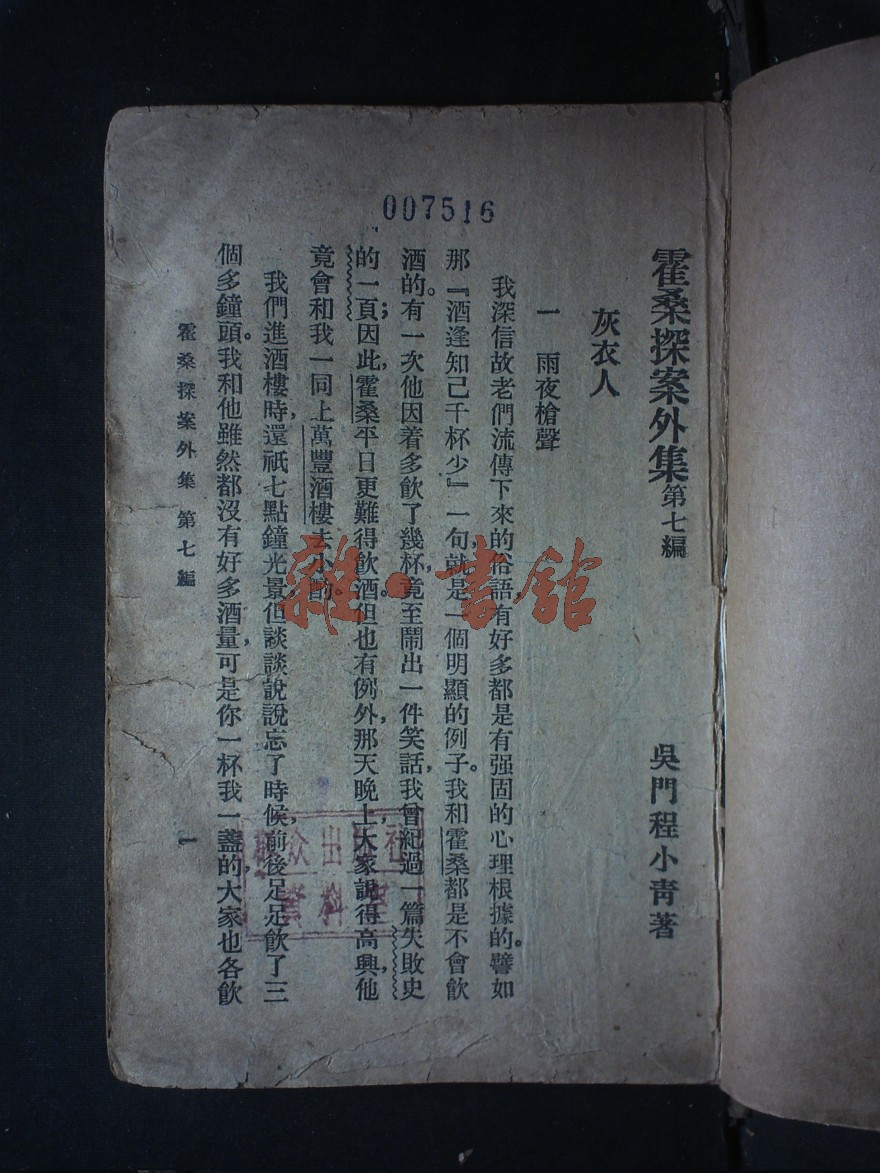 007516
霍桑探案外集 第七編
吳門程小青著
灰衣人
一 雨夜槍聲
我深信故老們流傳下來的俗語，有好多都是有强固的心理根據的。譬如
那『酒逢知己千杯少』一句，就是一個明顯的例子。我和霍桑都是不會飲
酒的。有一次他因着多飲了幾杯，竟至鬧出一件笑話，我曾紀過一篇失敗史
的一頁；因此，霍桑平日更難得飲酒。但也有例外，那天晚上，大家說得高興，他
竟會和我一同上萬豐酒樓去小酌。
我們進酒樓時，還祇七點鐘光景，但談談說說，忘了時候，前後足足飲了三
個多鐘頭。我和他雖然都沒有好多酒量，可是你一杯我一盞的，大家也各飲
霍桑探案外集 第七編
一
雜·書館
群众出版社
資料室